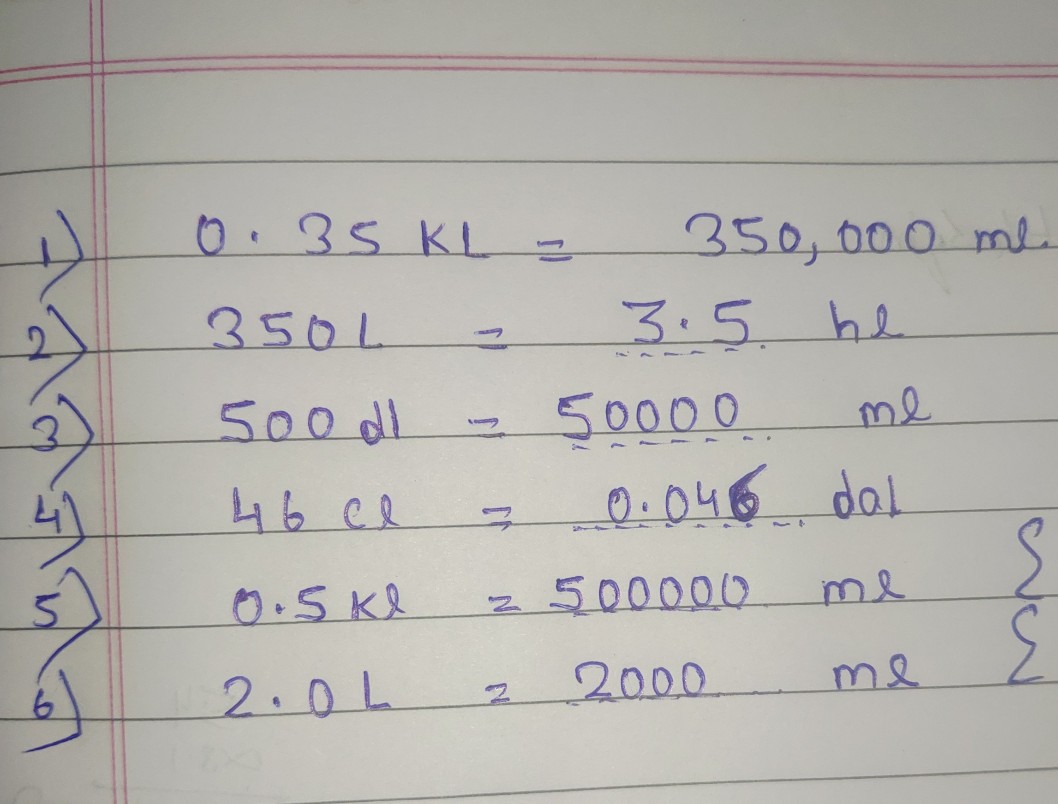 1) 0.35 KL = 350,000 ml.
2) 350 L = 3.5 hl
3) 500 dl = 50000 ml
4) 46 cl = 0.046 dal
5) 0.5 Kl = 500000 ml {
6) 2.0 L = 2000 ml {